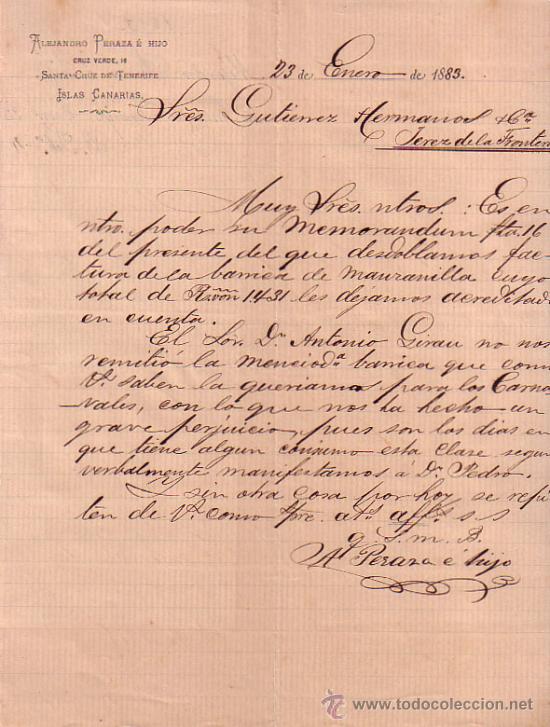 ALEJANDRO PERAZA É HIJO
CRUZ VERDE, 16
SANTA CRUZ DE TENERIFE
ISLAS CANARIAS.
23 de Enero de 1883.
Srēs. Gutierrez Hermanos & Cª
Jerez de la Fronter
Muy Srēs. ntros.: Es en
ntro. poder su Memorandum fha. 16
del presente del que desdoblamos fac-
tura de la barrica de Manzanilla cuyo
total de Rsvón 1431 les dejamos acreditado
en cuenta.
El Sor. Dn. Antonio Girau no nos
remitió la menciodª barrica que como
Vs. saben la queriamos para los Carna-
vales, con lo que nos ha hecho un
grave perjuicio, pues son los dias en
que tiene algun consumo esta clase segun
verbalmente manifestamos á Dn. Pedro.
I sin otra cosa por hoy se repi-
ten de Vs. como spre. ats. affs. s s
q. s. m. B.
Al Peraza é hijo
todocoleccion
www.todocoleccion.net